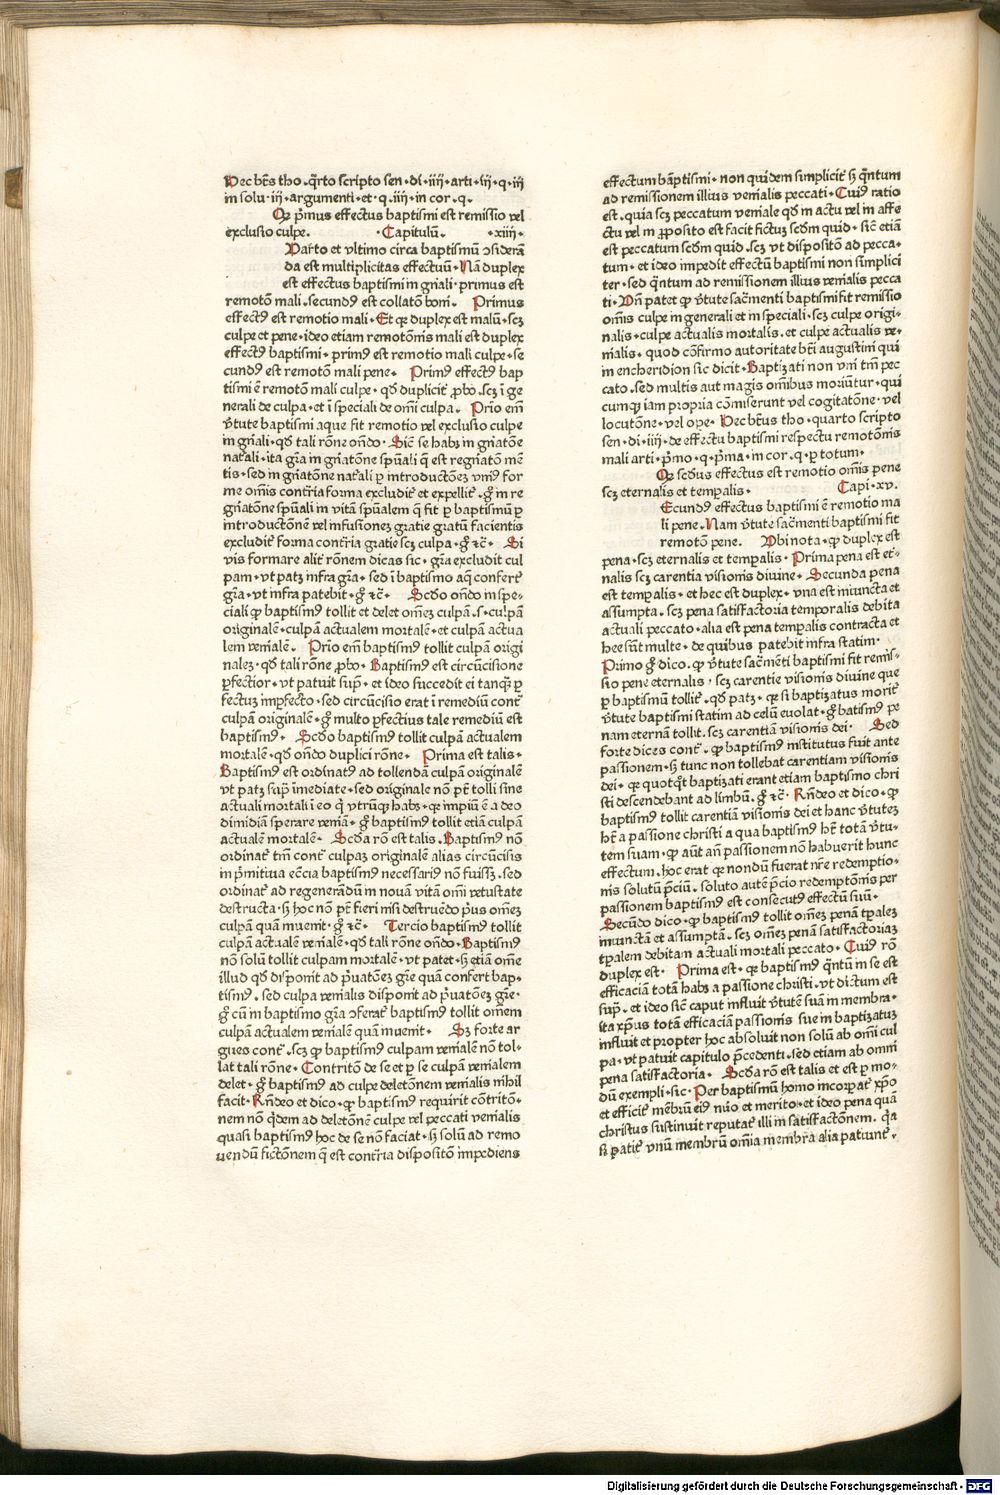 Hec bt̃s tho ⸳ q̃rto scripto sen ⸳ di ⸳ iiij ⸳ arti ⸳ iij ⸳ q ⸳ iij
in solu ⸳ iij ⸳ argumenti ⸳ et ⸳ q ⸳ iiij ⸳ in cor ⸳ q ⸳
Qꝫ p̃mus effectus baptismi est remissio vel
exclusio culpe ⸳ ⸳ Capitulũ ⸳ ⸳ xiiij ⸳
Uarto et vltimo circa baptismũ ↄsiderã
da est multiplicitas effectuũ ⸳ Nã duplex
est effectus baptismi in gñali ⸳ primus est
remotõ mali ⸳ secundꝰ est collatõ boni ⸳ Primus
effectꝰ est remotio mali ⸳ Et qꝛ duplex est malũ ⸳ scꝫ
culpe et pene ⸳ ideo etiam remotõnis mali est duplex
effectꝰ baptismi ⸳ primꝰ est remotio mali culpe ⸳ se
cundꝰ est remotõ mali pene ⸳ Primꝰ effectꝰ bap
tismi ẽ remotõ mali culpe ⸳ qđ duplicit̃ ꝓbo ⸳ scꝫ ĩ ge
nerali de culpa ⸳ et ĩ speciali de om̃i culpa ⸳ Prio em̃
ṽtute baptismi aque fit remotio vel exclusio culpe
in gñali ⸳ qđ tali rõne onđo ⸳ Sic̃ se habꝫ in gñatõne
nat̃ali ⸳ ita gr̃a in gñatõne spũali q̃ est regñatõ mẽ
tis ⸳ sed in gñatõne nat̃ali ꝑ introductõeꝫ vniꝰ for
me om̃is contr̃ia forma excludit̃ et expellit̃ ⸳ g̃ in re
gñatõne spũali in vitã spũalem q̃ fit ꝑ baptismũ ꝑ
introductõnẽ vel infusioneꝫ gr̃atie gratũ facientis
excludit̃ forma contr̃ia gratie scꝫ culpa ⸳ g̃ ⁊c̃ ⸳ Si
vis formare alit̃ rõnem dicas sic ⸳ gr̃a excludit cul
pam ⸳ vt patꝫ infra gr̃a ⸳ sed ĩ baptismo aq̃ confert̃
gr̃a ⸳ vt infra patebit ⸳ g̃ ⁊c̃ ⸳ Scđo onđo in spe⸗
ciali ꝙ baptismꝰ tollit et delet om̃eꝫ culpã ⸳ s ⸳ culpã
originalẽ ⸳ culpã actualem mortalẽ ⸳ et culpã actua
lem venialẽ ⸳ Prio em̃ baptismꝰ tollit culpam origi
naleꝫ ⸳ qđ tali rõne ꝓbo ⸳ Baptismꝰ est circũcisione
ꝑfectior ⸳ vt patuit supr̃ ⸳ et ideo succedit ei tanqꝫ ꝑ
fectuꝫ imꝑfecto ⸳ sed circũcisio erat ĩ remediũ cont̃
culpã originalẽ ⸳ g̃ multo ꝑfectius tale remediũ est
baptismꝰ ⸳ Scđo baptismꝰ tollit culpã actualem
mortalẽ ⸳ qđ onđo duplici rõne ⸳ Prima est talis ⸳
Baptismꝰ est ordinatꝰ ad tollendã culpã originalẽ
vt patꝫ supr̃ imediate ⸳ sed originale nõ põt tolli sine
actuali mortali ĩ eo q̃ vtrũqꝫ habꝫ ⸳ qꝛ impiũ ẽ a deo
dimidiã sperare veniã ⸳ g̃ baptismꝰ tollit etiã culpã
actualẽ mortalẽ ⸳ Scđa rõ est talis ⸳ Baptismꝰ nõ
ordinat̃ tm̃ cont̃ culpaꝫ originalẽ alias circũcisis
in p̃mitiua eccĩa baptismꝰ necessariꝰ nõ fuissꝫ ⸳ sed
ordinat̃ ad regenerãdũ in nouã vitã om̃i vetustate
destructa ⸳ sꝫ hoc nõ põt fieri nisi destruẽdo pr̃us om̃eꝫ
culpã quã inuenit ⸳ g̃ ⁊c̃ ⸳ Tercio baptismꝰ tollit
culpã actualẽ venialẽ ⸳ qđ tali rõne onđo ⸳ Baptismꝰ
nõ solũ tollit culpam mortalẽ ⸳ vt patet ⸳ sꝫ etiã om̃e
illud qđ disponit ad p̃uatõeꝫ gr̃e quã confert bap⸗
tismꝰ ⸳ sed culpa venialis disponit ad p̃uatõeꝫ gr̃e ⸳
g̃ cũ in baptismo gr̃a ↄferat̃ baptismꝰ tollit om̃em
culpã actualem venialẽ quã inuenit ⸳ Sꝫ forte ar
gues cont̃ ⸳ scꝫ ꝙ baptismꝰ culpam venialem nõ tol⸗
lat tali rõne ⸳ Contritõ de se et ꝑ se culpã venialem
delet ⸳ g̃ baptismꝰ ad culpe deletõnem venialis nihil
facit ⸳ Rñdeo et dico ⸳ ꝙ baptismꝰ requirit cõtritõ⸗
nem nõ q̃dem ad deletõnẽ culpe vel peccati venialis
quasi baptismꝰ hoc de se nõ faciat ⸳ sꝫ solũ ad remo
uendũ fictõnem q̃ est contr̃ia dispositõ impediens
effectum bãptismi ⸳ non quidem simplicit̃ sꝫ q̃ntum
ad remissionem illius venialis peccati ⸳ Cuiꝰ ratio
est ⸳ quia scꝫ peccatum veniale qđ in actu vel in affe
ctu vel in ꝓposito est facit fictuꝫ scđm quid ⸳ sic̃ etiã
est peccatum scđm quid ⸳ scꝫ vt dispositõ ad pecca⸗
tum ⸳ et ideo impedit effectũ baptismi non simplici
ter ⸳ sed q̃ntum ad remissionem illius venialis pecca
ti ⸳ Vñ patet ꝙ ṽtute sac̃menti baptismi fit remissio
om̃is culpe in generali et in speciali ⸳ scꝫ culpe origi⸗
nalis ⸳ culpe actualis mortalis ⸳ et culpe actualis ve⸗
nialis ⸳ quod cõfirmo autoritate bt̃i augustini qui
in encheridion sic dicit ⸳ Baptizati non vni tm̃ pec
cato ⸳ sed multis aut magis om̃ibus moriũtur ⸳ qui
cumqꝫ iam propria cõmiserunt vel cogitatõne ⸳ vel
locutõne ⸳ vel oꝑe ⸳ Hec bt̃us tho ⸳ quarto scripto
sen ⸳ di ⸳ iiij ⸳ de effectu baptismi respectu remotõnis
mali arti ⸳ p̃mo ⸳ q ⸳ p̃ma ⸳ in cor ⸳ q ⸳ ꝑ totum ⸳
Qꝫ scđus effectus est remotio om̃is pene
scꝫ eternalis et temꝑalis ⸳ Capi ⸳ xv ⸳
Ecundꝰ effectus baptismi ẽ remotio ma
li pene ⸳ Nam ṽtute sac̃menti baptismi fit
remotõ pene ⸳ Ubi nota ⸳ ꝙ duplex est
pena ⸳ scꝫ eternalis et temꝑalis ⸳ Prima pena est et⸗
nalis scꝫ carentia visionis diuine ⸳ Secunda pena
est temꝑalis ⸳ et hec est duplex ⸳ vna est iniuncta et
assumpta ⸳ scꝫ pena satisfactoria temporalis debita
actuali peccato ⸳ alia est pena temꝑalis contracta et
hee sũt multe ⸳ de quibus patebit infra statim ⸳
Primo g̃ dico ⸳ ꝙ ṽtute sac̃mẽti baptismi fit remis⸗
sio pene eternalis ⸳ scꝫ carentie visionis diuine que
ꝑ baptismũ tollit̃ ⸳ qđ patꝫ ⸳ qꝛ si baptizatus morit̃
ṽtute baptismi statim ad celũ euolat ⸳ g̃ batismꝰ pe
nam eternã tollit ⸳ scꝫ carentiã visionis dei ⸳ Sed
forte dices cont̃ ⸳ ꝙ baptismꝰ institutus fuit ante
passionem ⸳ sꝫ tunc non tollebat carentiam visionis
dei ⸳ qꝛ quotq̃t baptizati erant etiam baptismo chri
sti descendebant ad limbũ ⸳ g̃ ⁊c̃ ⸳ Rñdeo et dico ⸳ ꝙ
baptismꝰ tollit carentiã visionis dei et hanc ṽtuteꝫ
hꝫt a passione christi a qua baptismꝰ hꝫt totã ṽtu⸗
tem suam ⸳ ꝙ aũt añ passionem nõ habuerit hunc
effectum ⸳ hoc erat qꝛ nondũ fuerat nr̃e redemptio⸗
nis solutũ p̃ciũ ⸳ soluto autẽ p̃cio redemptõnis per
passionem baptismꝰ est consecutꝰ effectũ suũ ⸳
Secũdo dico ⸳ ꝙ baptismꝰ tollit om̃eꝫ penã tꝑaleꝫ
iniunctã et assumptã ⸳ scꝫ om̃eꝫ penã satisfactoriaꝫ
tꝑalem debitam actuali mortali peccato ⸳ Cuiꝰ rõ
duplex est ⸳ Prima est ⸳ qꝛ baptismꝰ q̃ntũ in se est
efficaciã totã habꝫ a passione christi ⸳ vt dictum est
supr̃ ⸳ et ideo sic̃ caput influit ṽtutẽ suã in membra ⸳
ita xp̃us totã efficaciã passionis sue in baptizatuꝫ
influit et propter hoc absoluit non solũ ab om̃i cul
pa ⸳ vt patuit capitulo p̃cedenti ⸳ sed etiam ab omni
pena satisfactoria ⸳ Scđa rõ est talis et est ꝑ mo⸗
dũ exempli ⸳ sic ⸳ Per baptismũ homo incorꝑat̃ xp̃o
et efficit̃ mẽbrũ eiꝰ nũo et merito ⸳ et ideo pena quã
christus sustinuit reputat̃ illi in satisfactõnem ⸳ q̃a
si ꝑatit̃ vnũ membrũ om̃ia membra alia patiunt̃ ⸳
Digitalisierung gefördert durch die Deutsche Forschungsgemeinschaft - DFG